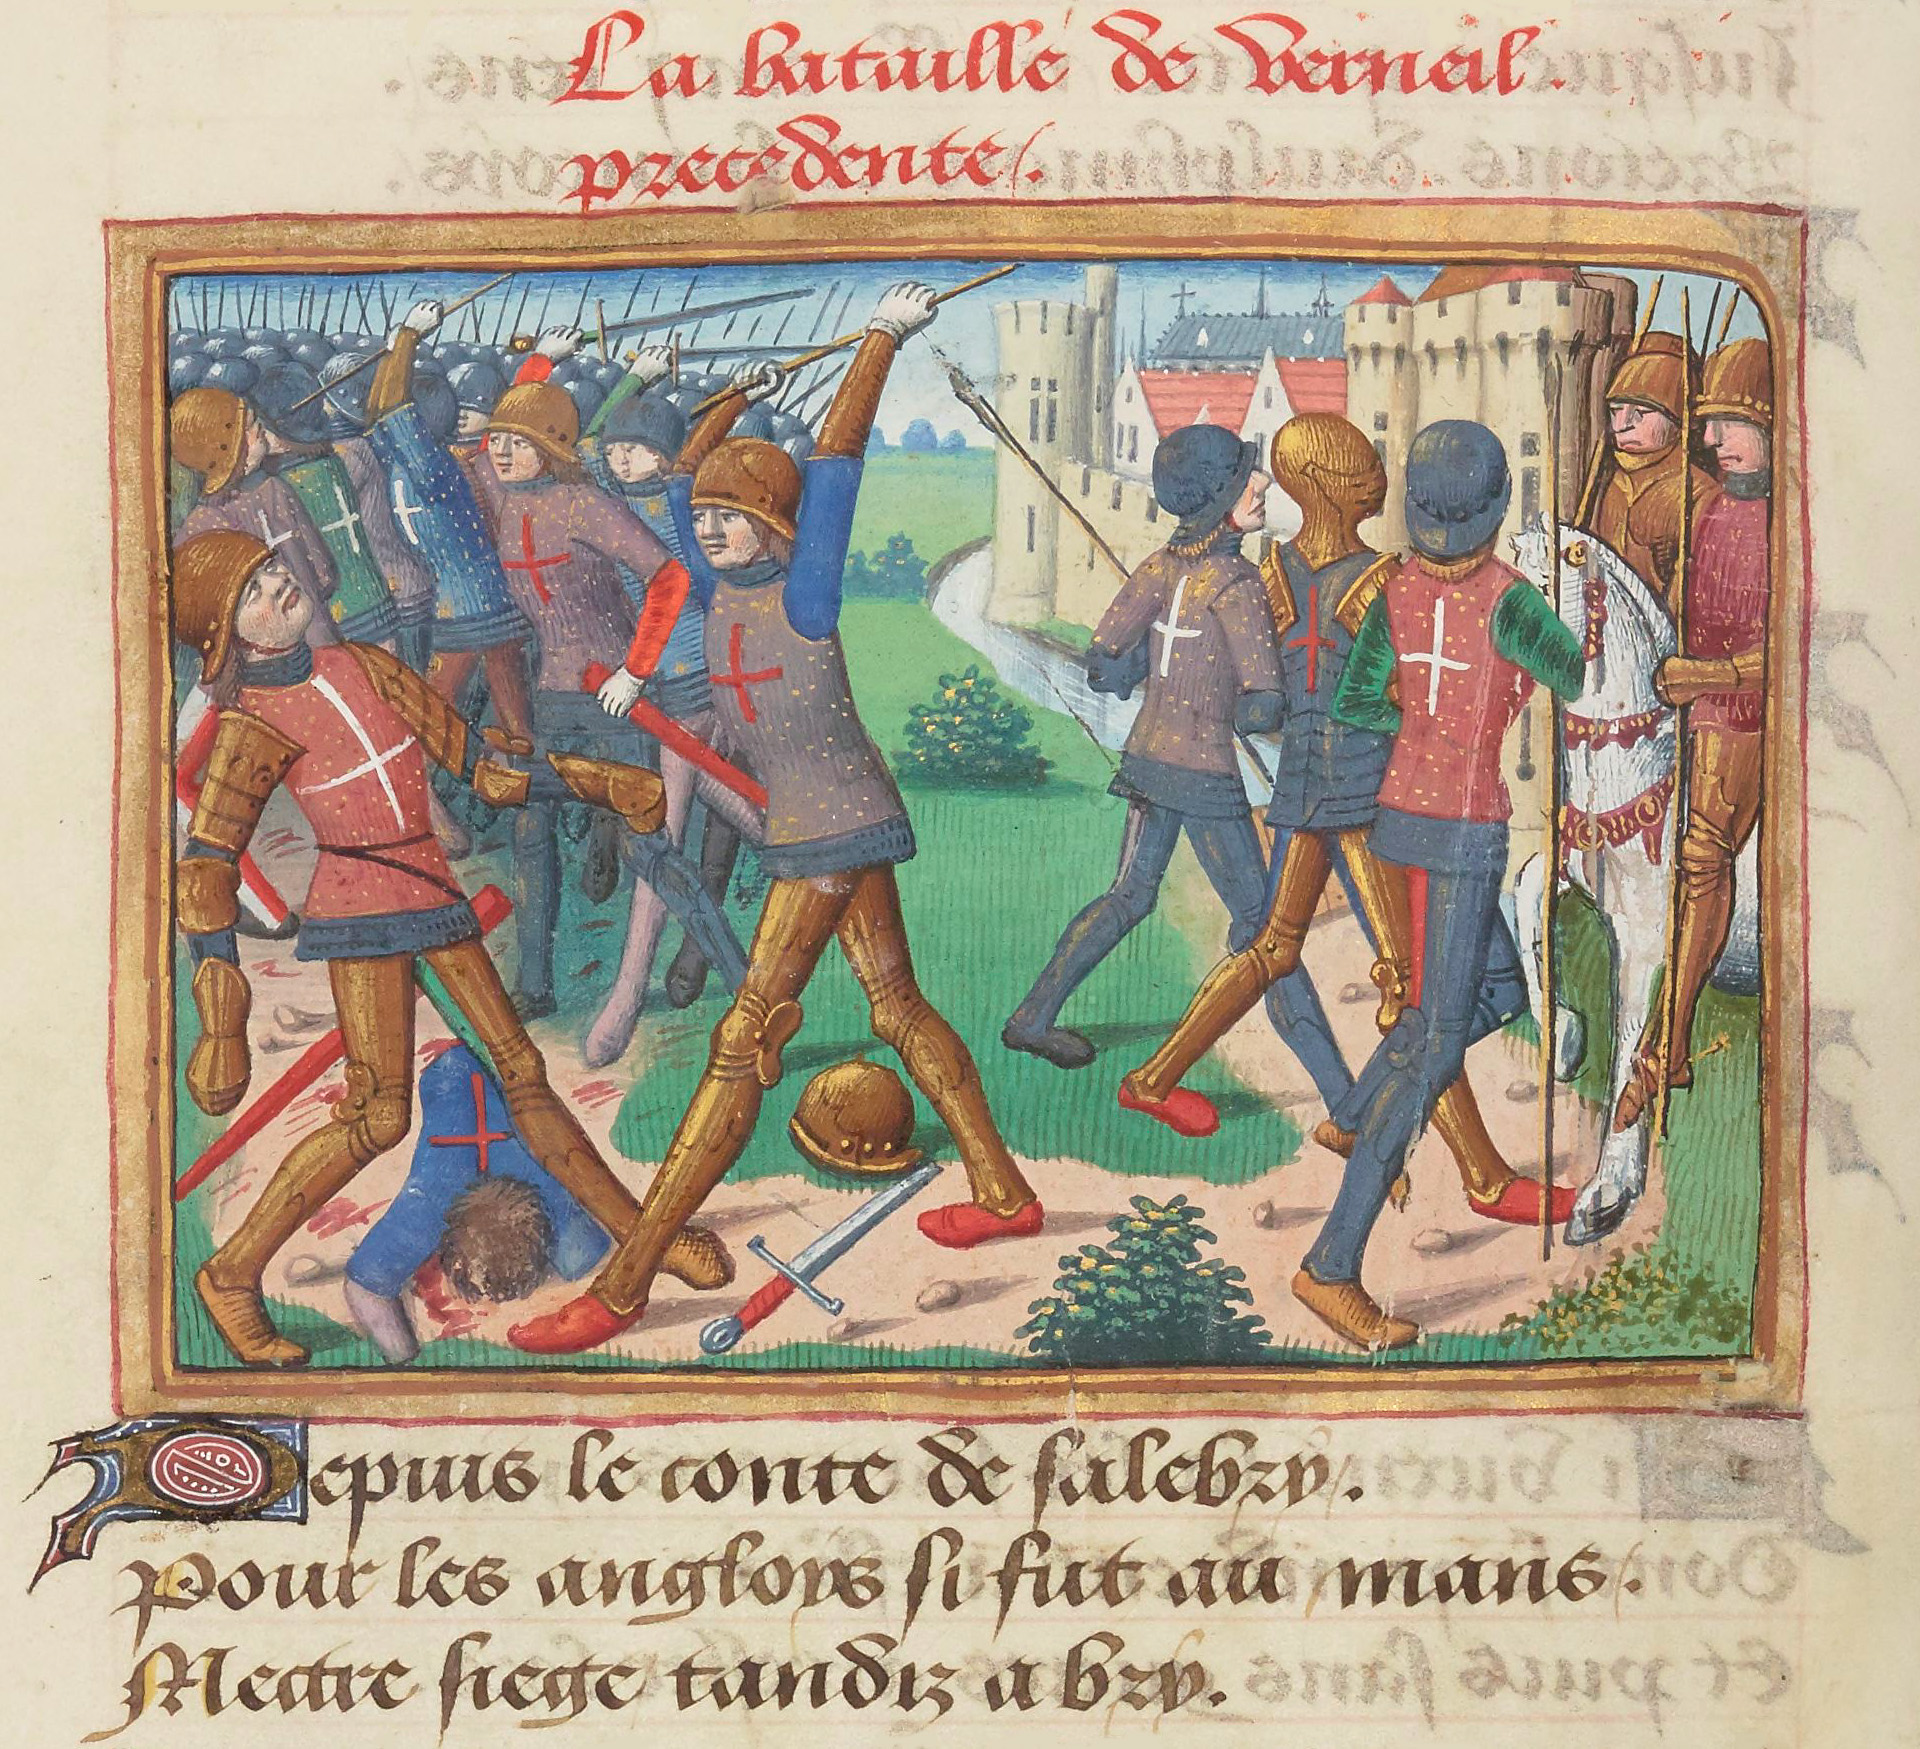 La bataille de Verneil.
precedente/.
Depuis le conte de salebry/.
Pour les angloys si fut au mans/.
Mectre siege tandiz a bry/.